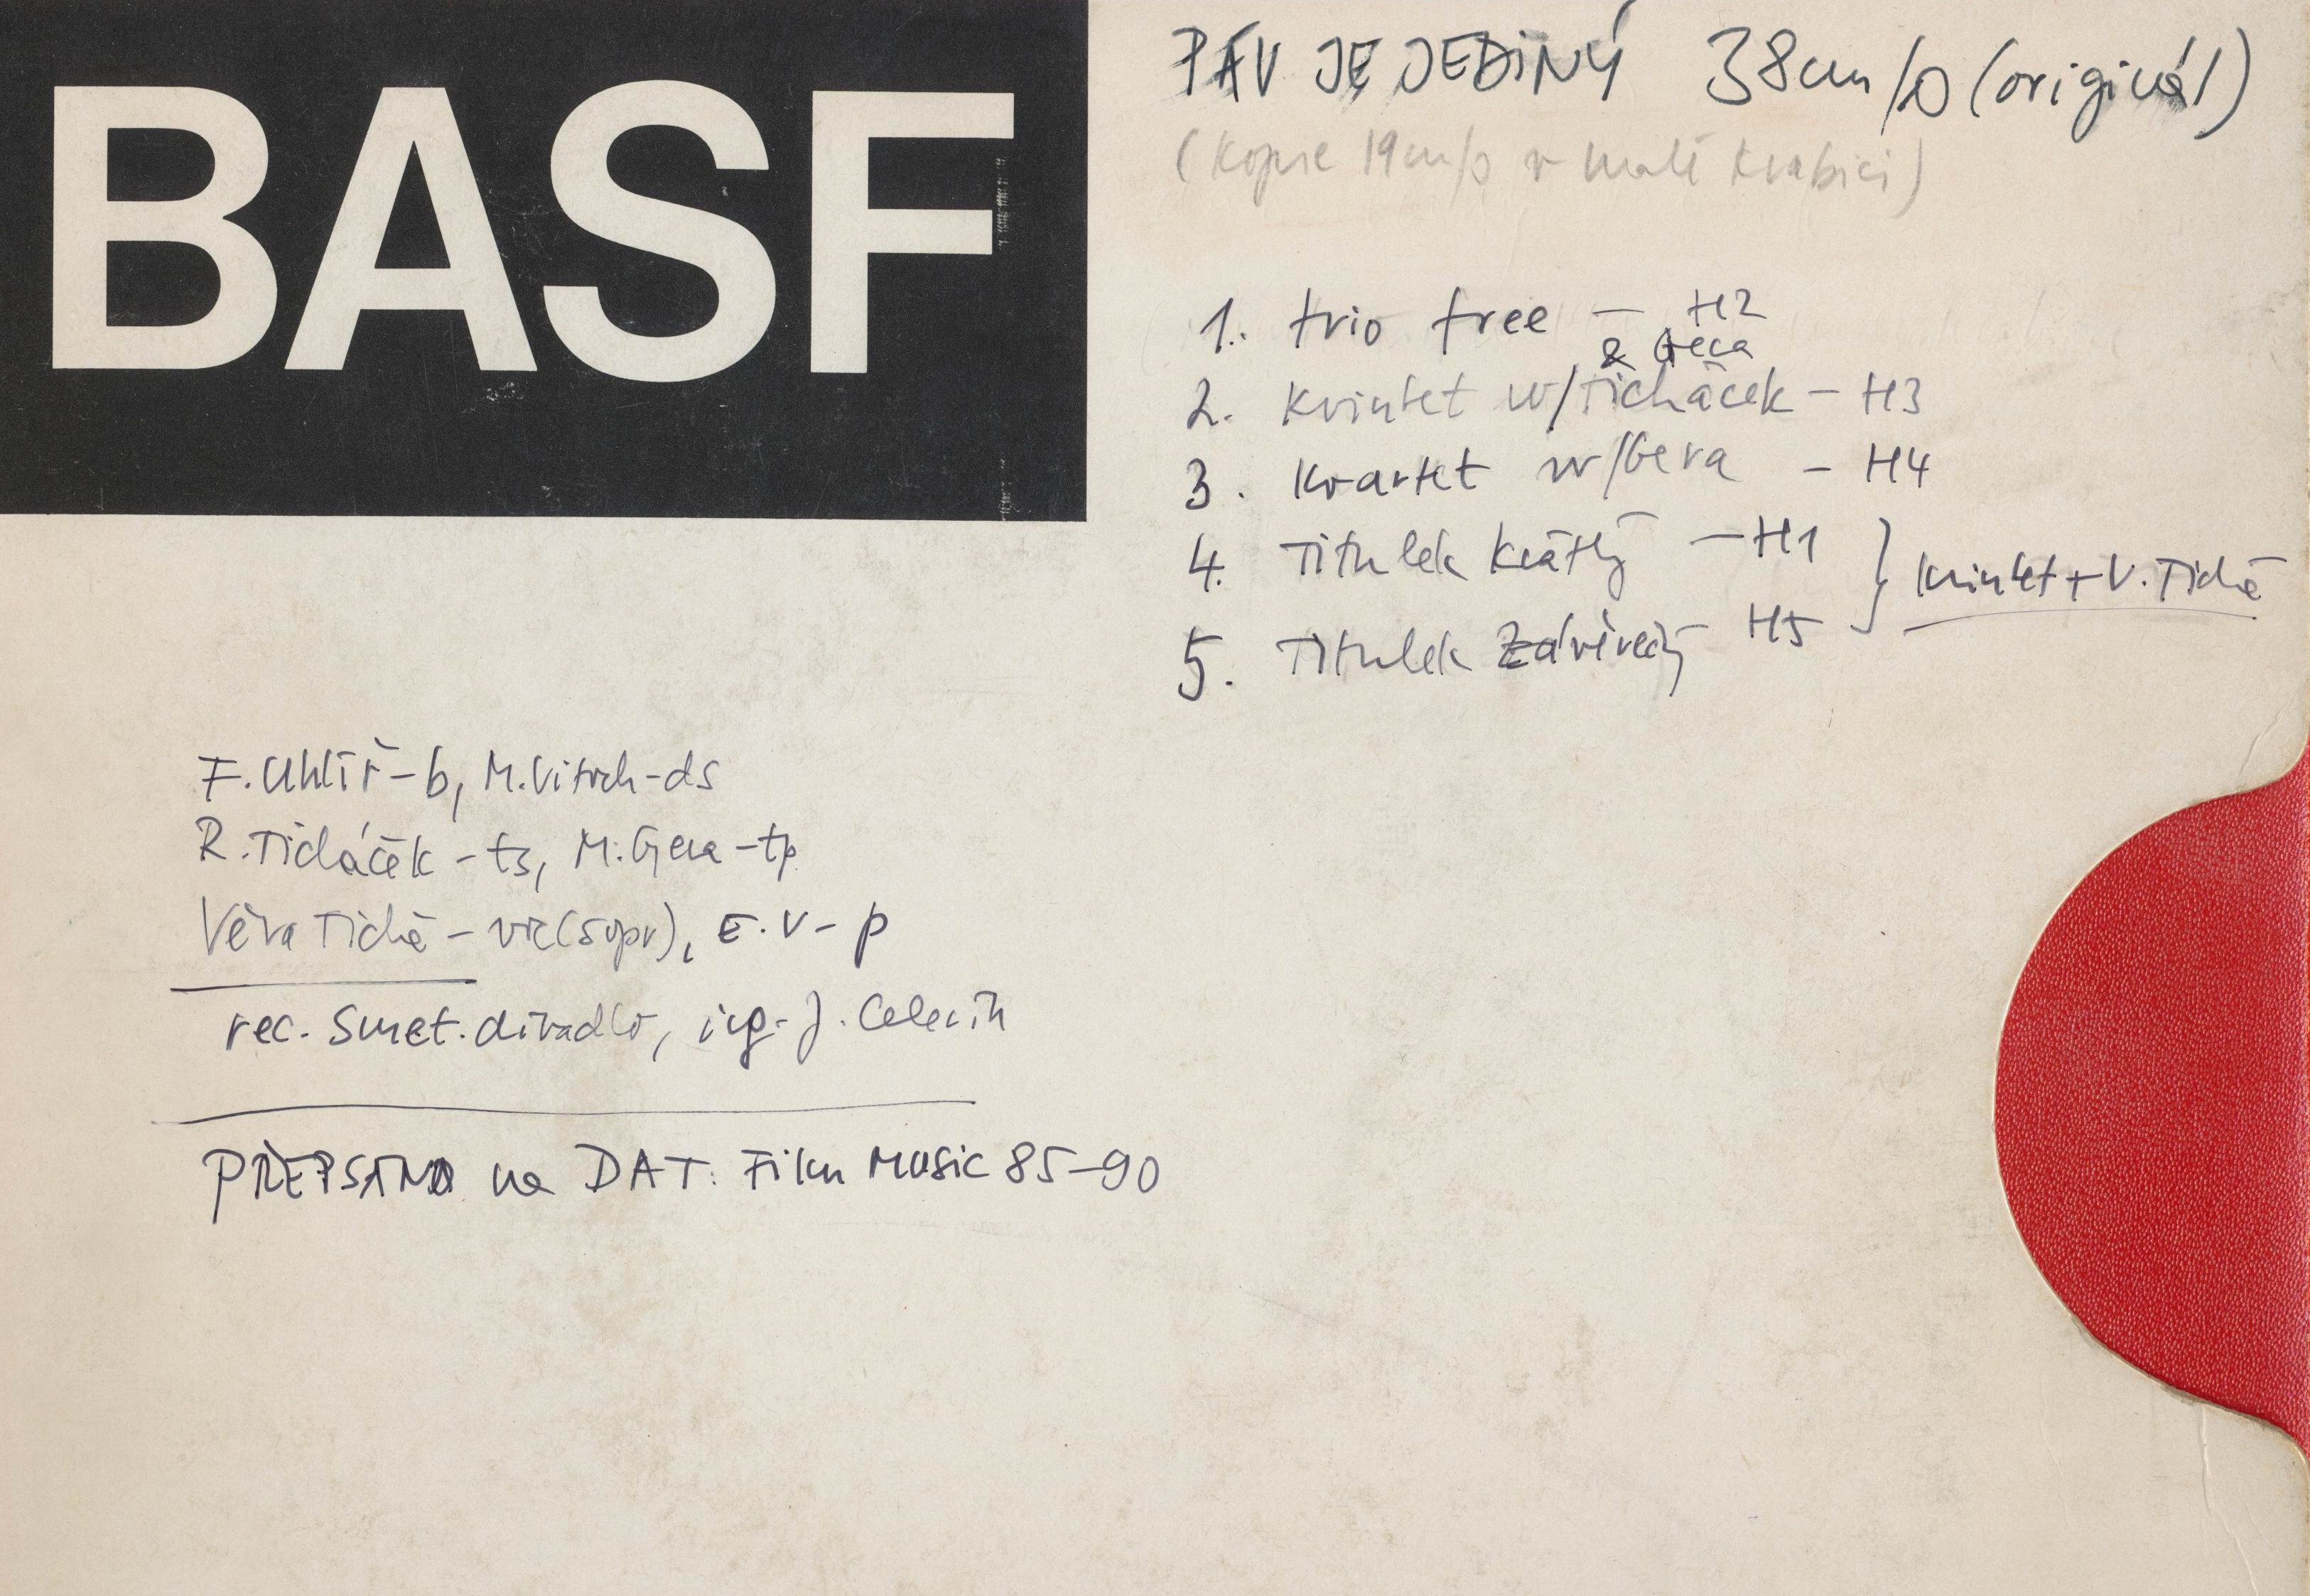 BASF
PÁV JE JEDINÝ 38cm/s (originál)
(kopie 19cm/s v malé krabici)
1. trio free - H2
& Gera
2. kvintet w/Ticháček - H3
3. kvartet w/Gera - H4
4. Titulek krátký - H1
5. Titulek závěrečný H5
} kvintet + V. Tichá
F. Uhlíř - b, M. Vitoch - ds
R. Ticháček - ts, M. Gera - tp
Věra Tichá - voc(sopr), E.V - p
rec. Smet. divadlo, ing. J.
PŘEPSÁNO na DAT: Film Music 85-90